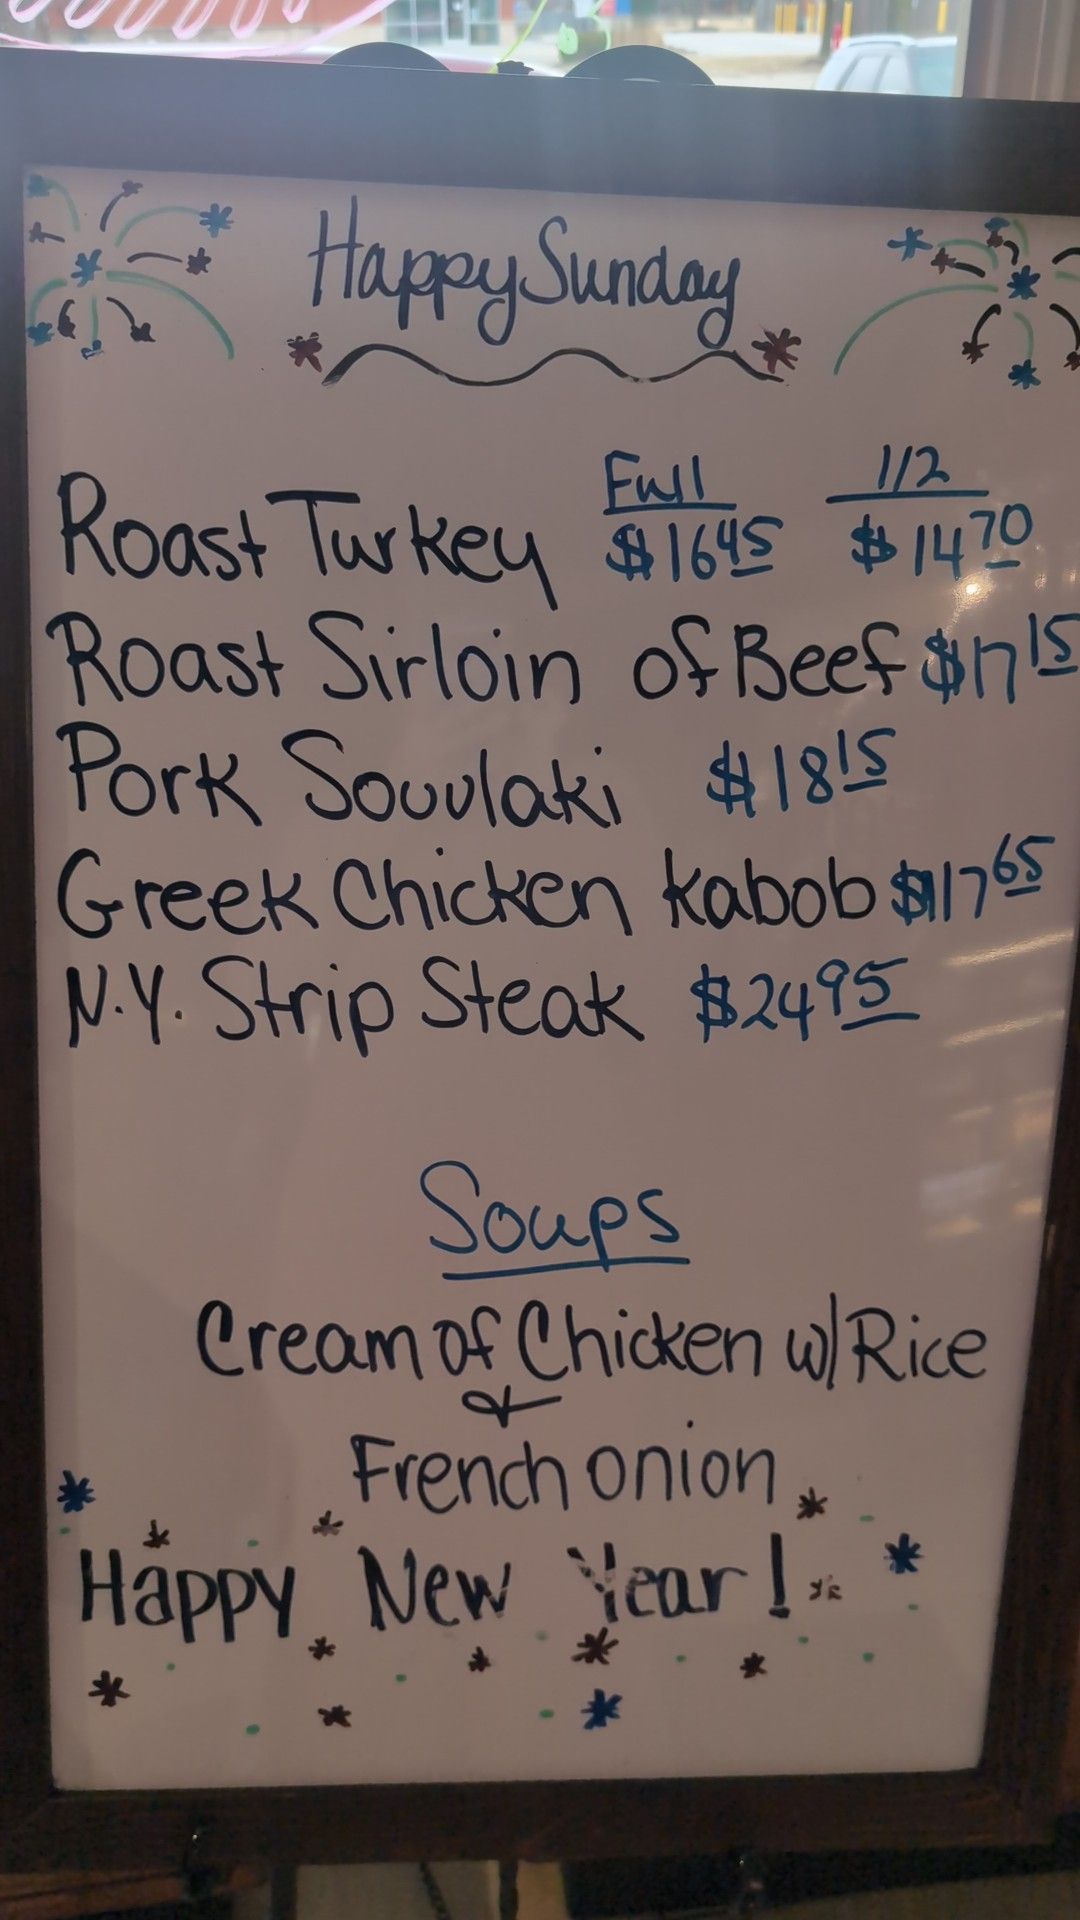 Happy Sunday
Full 1/2
Roast Turkey $16.45 $14.70
Roast Sirloin of Beef $17.15
Pork Souvlaki $18.15
Greek Chicken Kabob $17.65
N.Y. Strip Steak $24.95
Soups
Cream of Chicken w/ Rice
&
French onion
Happy New Year!